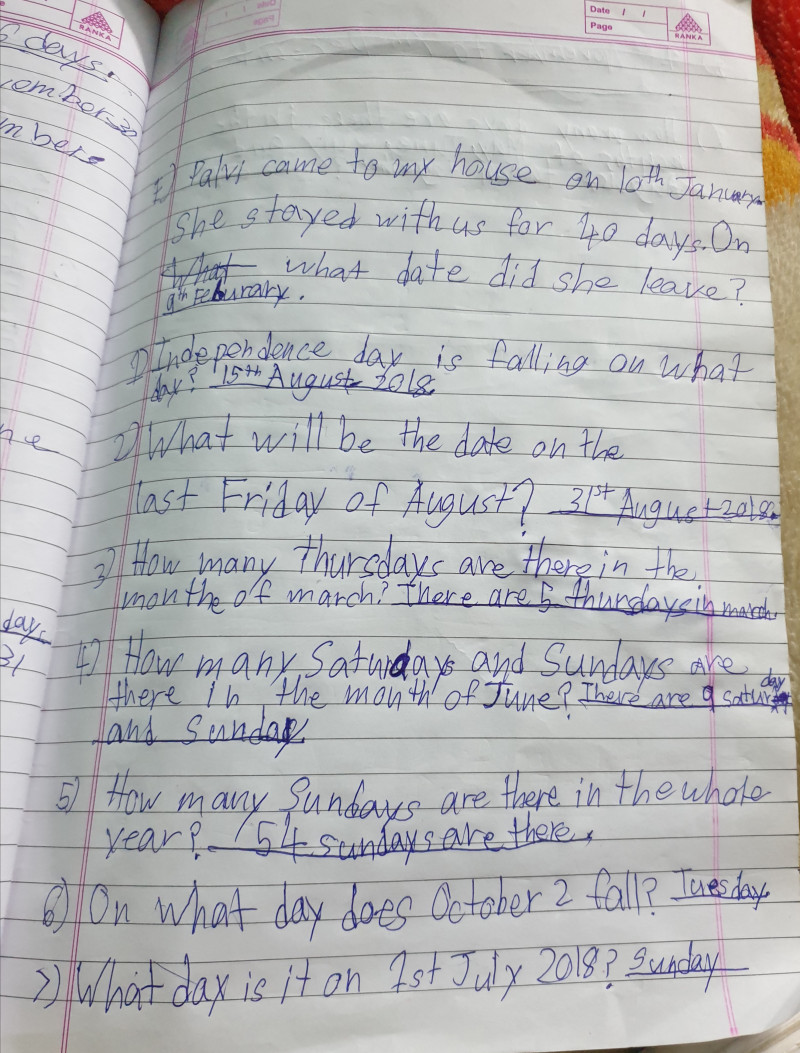 Date / /
Page
RANKA
RANKA
Date / /
Page
5 days.
mber
7) Palvi came to my house on 10th January.
She stayed with us for 40 days. On
What what date did she leave?
9th Feburary.
1) Independence day is falling on what
day? 15th August 2018
2) What will be the date on the
last Friday of August? 31st August 2018.
3) How many Thursdays are there in the
monthe of march? There are 5 thursdays in march
4) How many Saturdays and Sundays are
there in the month of June? There are 9 saturday
and Sunday
5) How many Sundays are there in the whole
year? 54 sundays are there.
6) On what day does October 2 fall? Tuesday.
7) What day is it on 1st July 2018? Sunday
ne
days
31